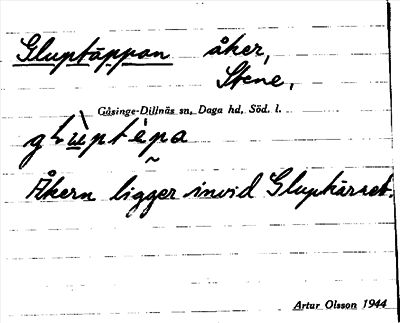 Gluptäppan åker,
Stene,
Gåsinge-Dillnäs sn, Daga hd, Söd. l.
Åkern ligger invid Glupkärret.
Artur Olsson 1944